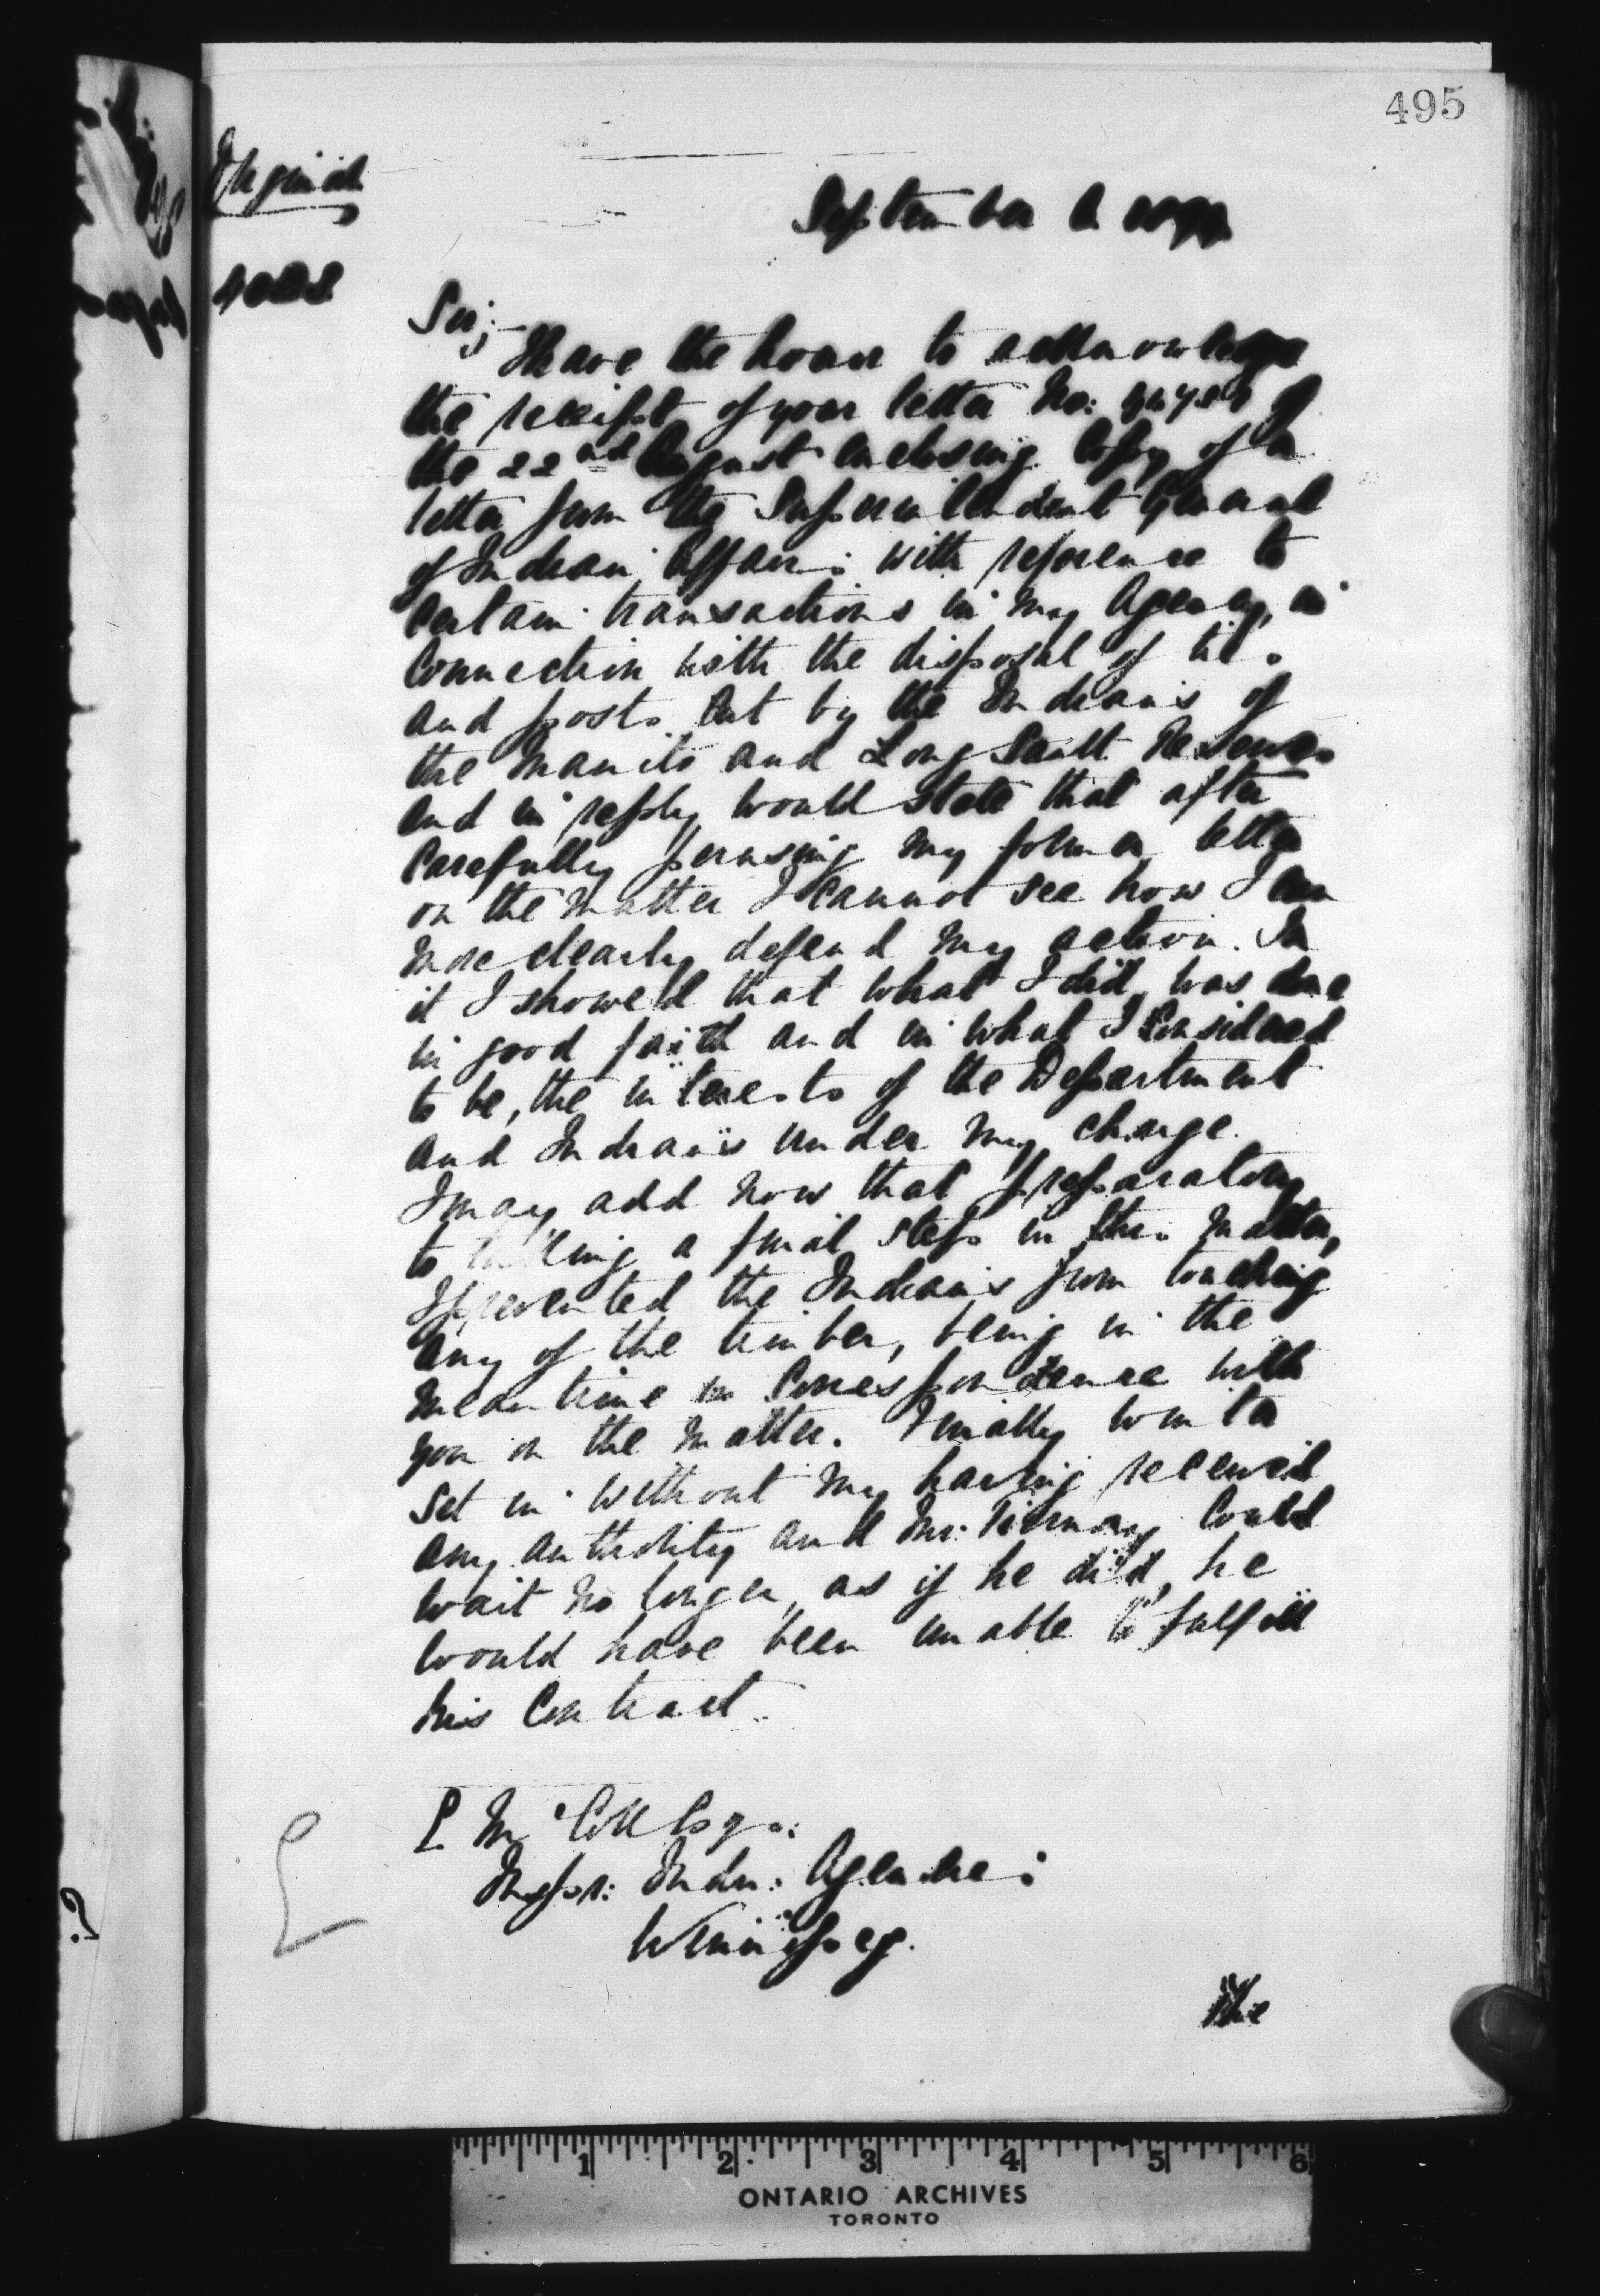 495
September
Sir;
I have the honor to acknowledge
the receipt of your letter No: of
the 22nd August enclosing Copy of a
letter from the Superintendent General
of Indian Affairs with reference to
Certain transactions in my Agency, in
Connection with the disposal of ties
and posts Cut by the Indians of
the Manito and Long Sault Reserves
and in reply would state that after
Carefully perusing my former letter
on the matter I Cannot see how I can
more clearly defend my action. In
it I showed that what I did, was done
in good faith and in what I Considered
to be, the interests of the Department
and Indians under my charge.
I may add now that preparatory
to taking a final step in this matter,
I prevented the Indians from touching
any of the timber, being in the
meantime in Correspondence with
you on the matter. Finally winter
set in without my having received
any authority and Mr: Tierney Could
wait no longer, as if he did, he
would have been unable to fulfill
his Contract.
E McColl Esqr:
Inspr: Indn: Agencies
Winnipeg.
The
1 2 3 4 5 6
ONTARIO ARCHIVES
TORONTO